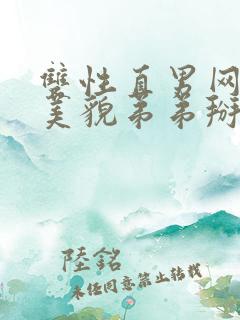 雙性直男网
美貌弟弟掰
陸銘
未经同意禁止转载